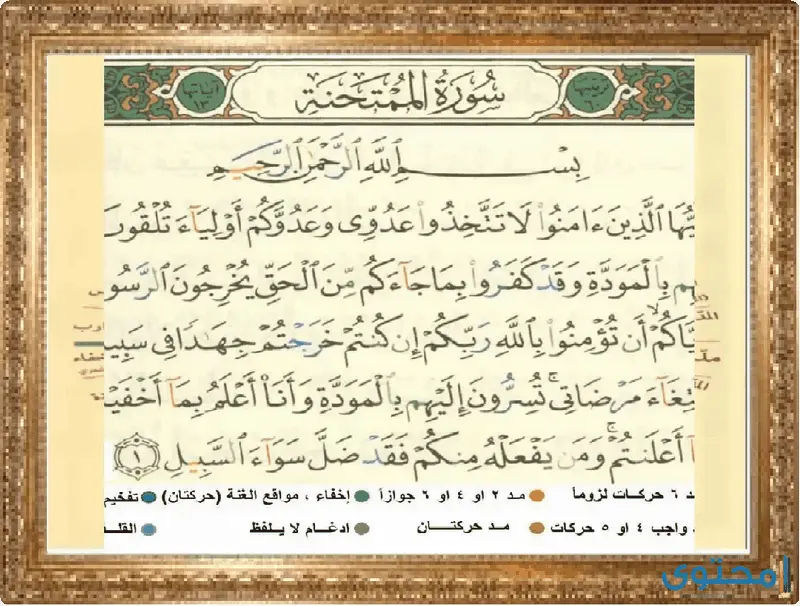 سُورَةُ الْمُمْتَحَنَةِ
ترتيبها ٦٠
آياتها ١٣
بِسْمِ ٱللَّهِ ٱلرَّحْمَٰنِ ٱلرَّحِيمِ
يُّهَا ٱلَّذِينَ ءَامَنُوا۟ لَا تَتَّخِذُوا۟ عَدُوِّى وَعَدُوَّكُمْ أَوْلِيَآءَ تُلْقُونَ
هِم بِٱلْمَوَدَّةِ وَقَدْ كَفَرُوا۟ بِمَا جَآءَكُم مِّنَ ٱلْحَقِّ يُخْرِجُونَ ٱلرَّسُو
يَّاكُمْ أَن تُؤْمِنُوا۟ بِٱللَّهِ رَبِّكُمْ إِن كُنتُمْ خَرَجْتُمْ جِهَٰدًا فِى سَبِي
تِغَآءَ مَرْضَاتِى تُسِرُّونَ إِلَيْهِم بِٱلْمَوَدَّةِ وَأَنَا۠ أَعْلَمُ بِمَآ أَخْفَيْ
آ أَعْلَنتُمْ وَمَن يَفْعَلْهُ مِنكُمْ فَقَدْ ضَلَّ سَوَآءَ ٱلسَّبِيلِ ١
ـد ٦ حركات لزوماً مد ٢ او ٤ او ٦ جوازاً إخفاء ، مواقع الغنة (حركتان) تفخيم
واجب ٤ او ٥ حركات مد حركتان ادغام لا يلفظ القلـ
محتوى